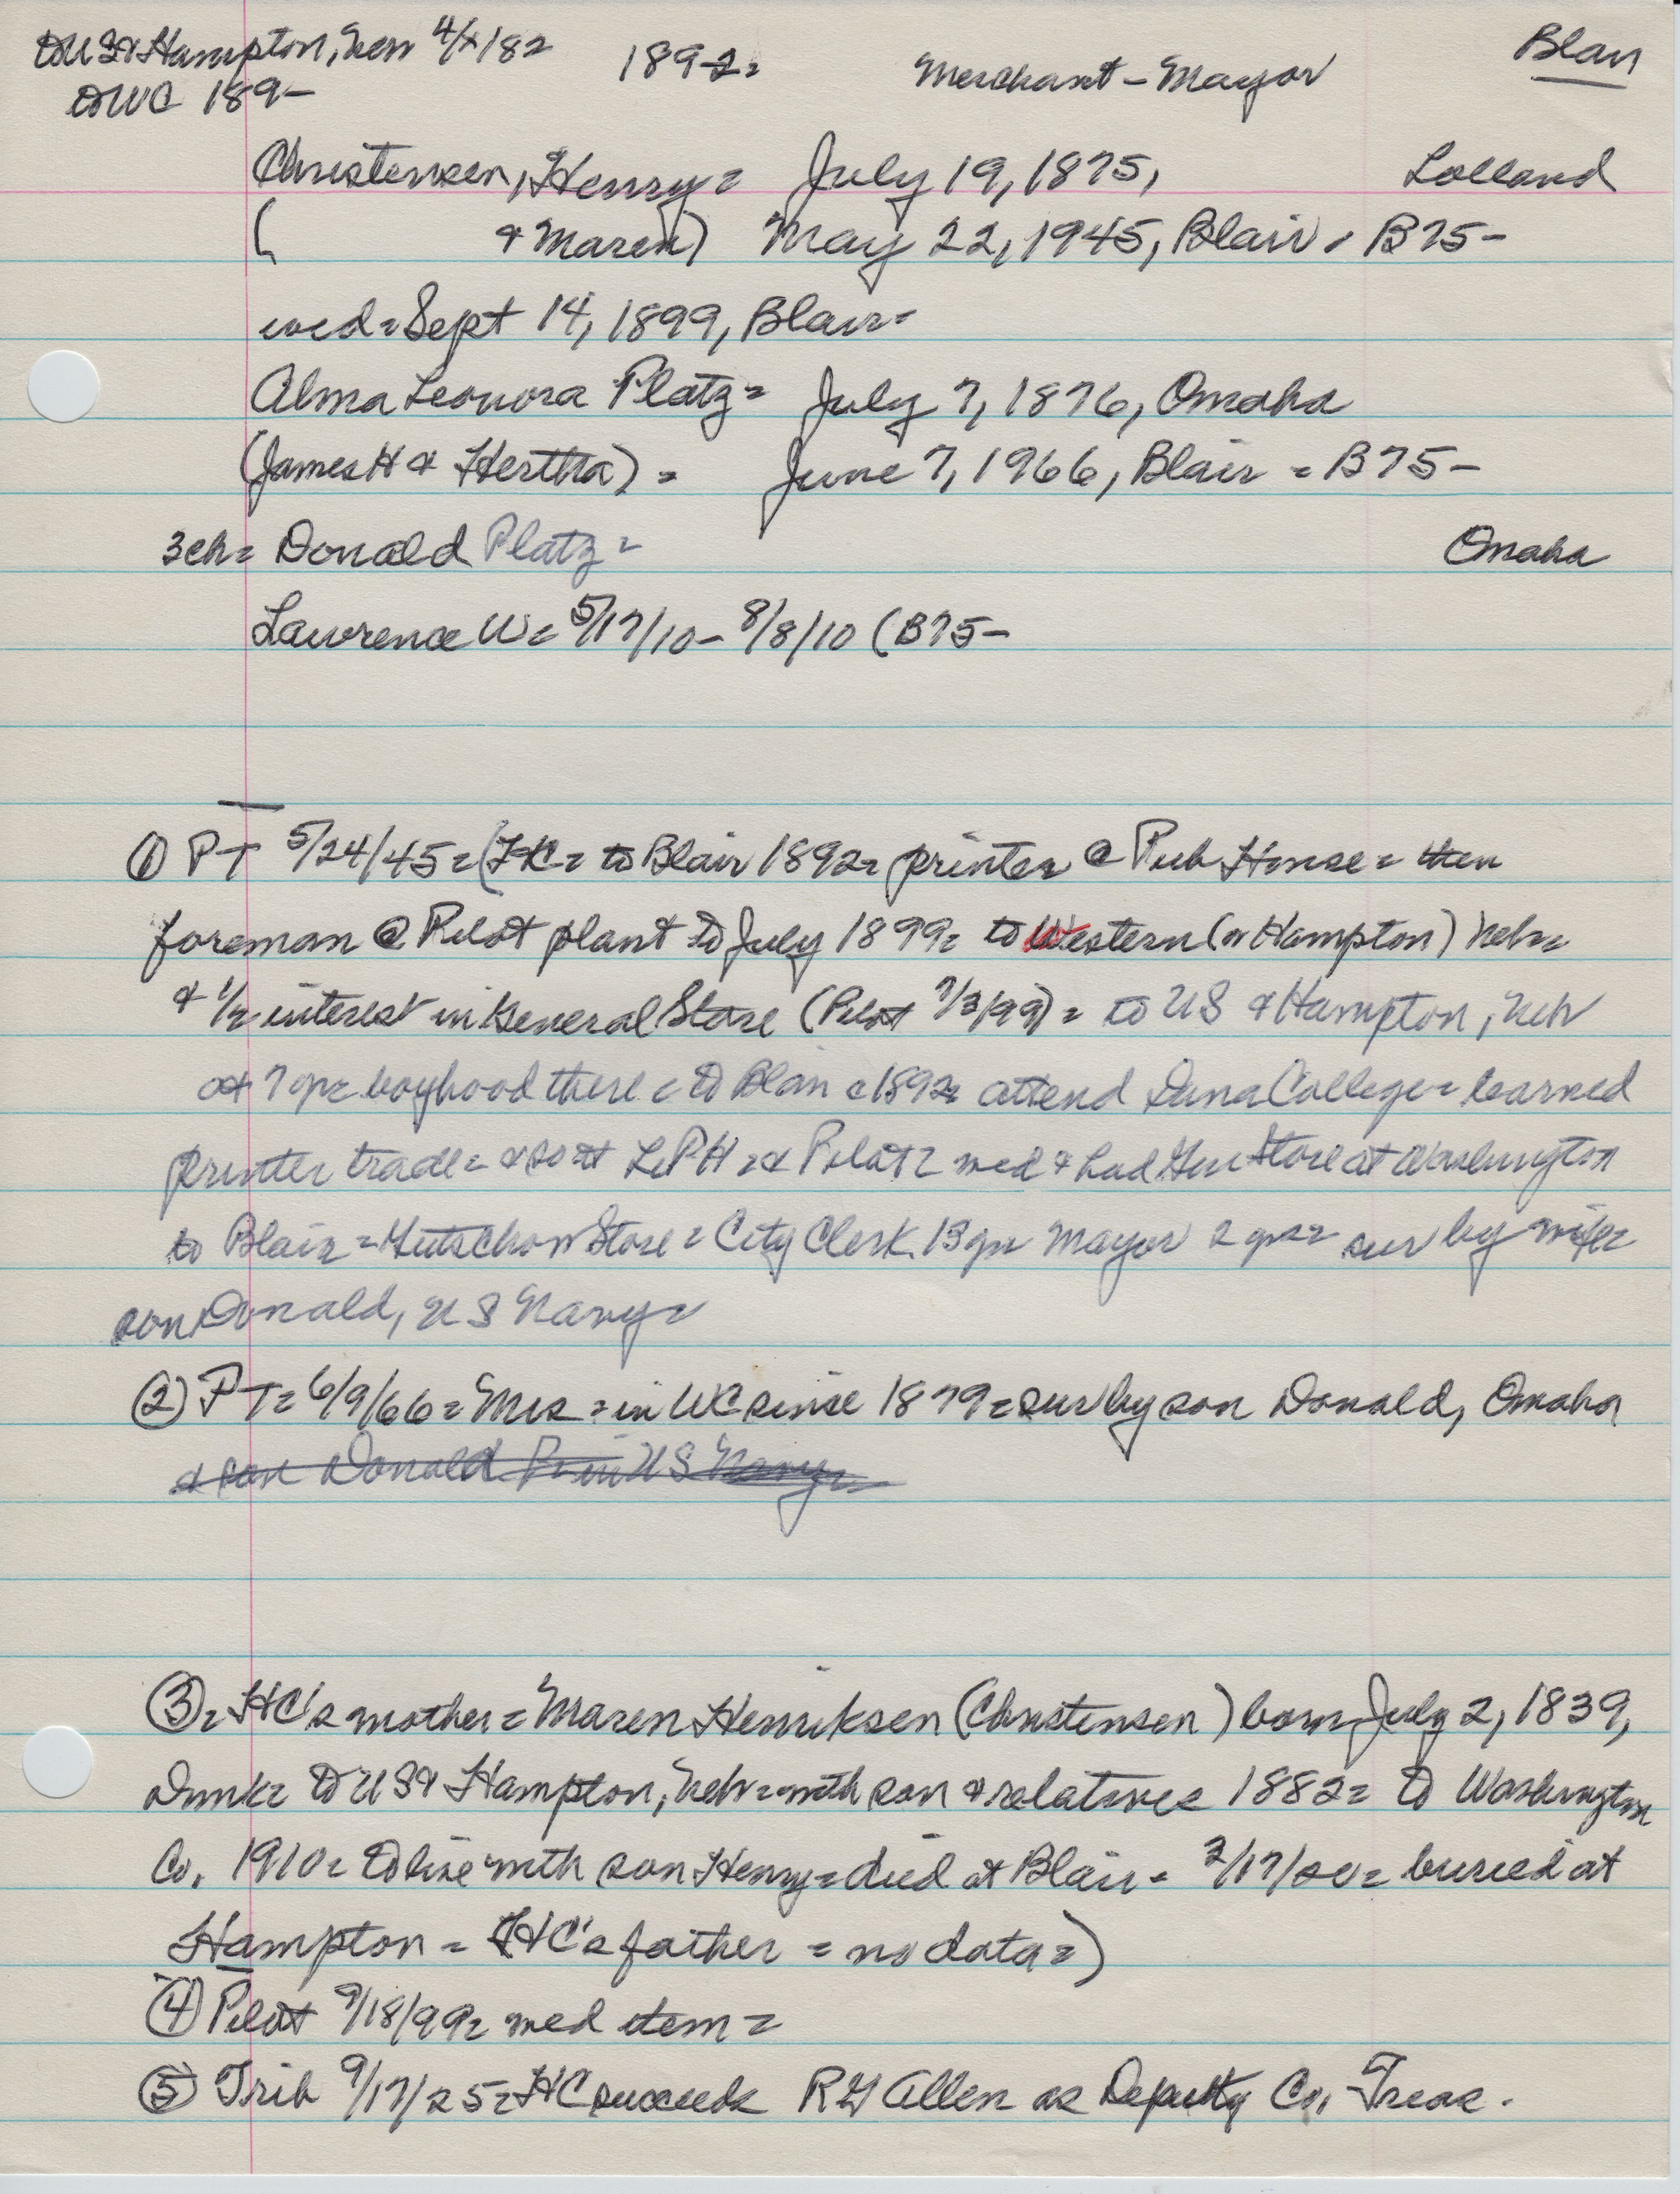 DUS & Hampton, Neb 4/x/82 1892= Merchant - Mayor Blair
DWC 189-
Christensen, Henry = July 19, 1875, Lolland
( & Maren) May 22, 1945, Blair = B75-
wed = Sept 14, 1899, Blair =
Alma Leonora Platz = July 7, 1876, Omaha
(James H & Hertha) = June 7, 1966, Blair = B75-
3ch = Donald Platz = Omaha
Lawrence W = 5/17/10 - 8/8/10 (B75-
① PT 5/24/45 = (HC = to Blair 1892 = printer @ Pub House = then
foreman @ Pilot plant to July 1899 = to Western (or Hampton) Neb =
& 1/2 interest in General Store (Pilot 7/3/99) = to US & Hampton, Neb
at 7 yr = boyhood there = to Blair c1892 = attend Dana College = learned
printer trade = & so at LPH = & Pilot = wed & had Gen Store at Washington
to Blair = Hutschow Store = City Clerk 13 yr = Mayor 2 yrs = sur by wife =
son Donald, US Navy =
② PT = 6/9/66 = Mrs = in WC since 1879 = sur by son Donald, Omaha
& son Donald P = in US Navy =
③ = HC's mother = Maren Henriksen (Christensen) born July 2, 1839,
Dmk = to US & Hampton, Neb = with son & relatives 1882 = to Washington
Co. 1910 = to live with son Henry = died at Blair = 2/17/20 = buried at
Hampton = (HC's father = no data =)
④ Pilot 9/18/99 = wed item =
⑤ Trib 9/17/25 = HC succeeds RG Allen as Deputy Co. Treas.